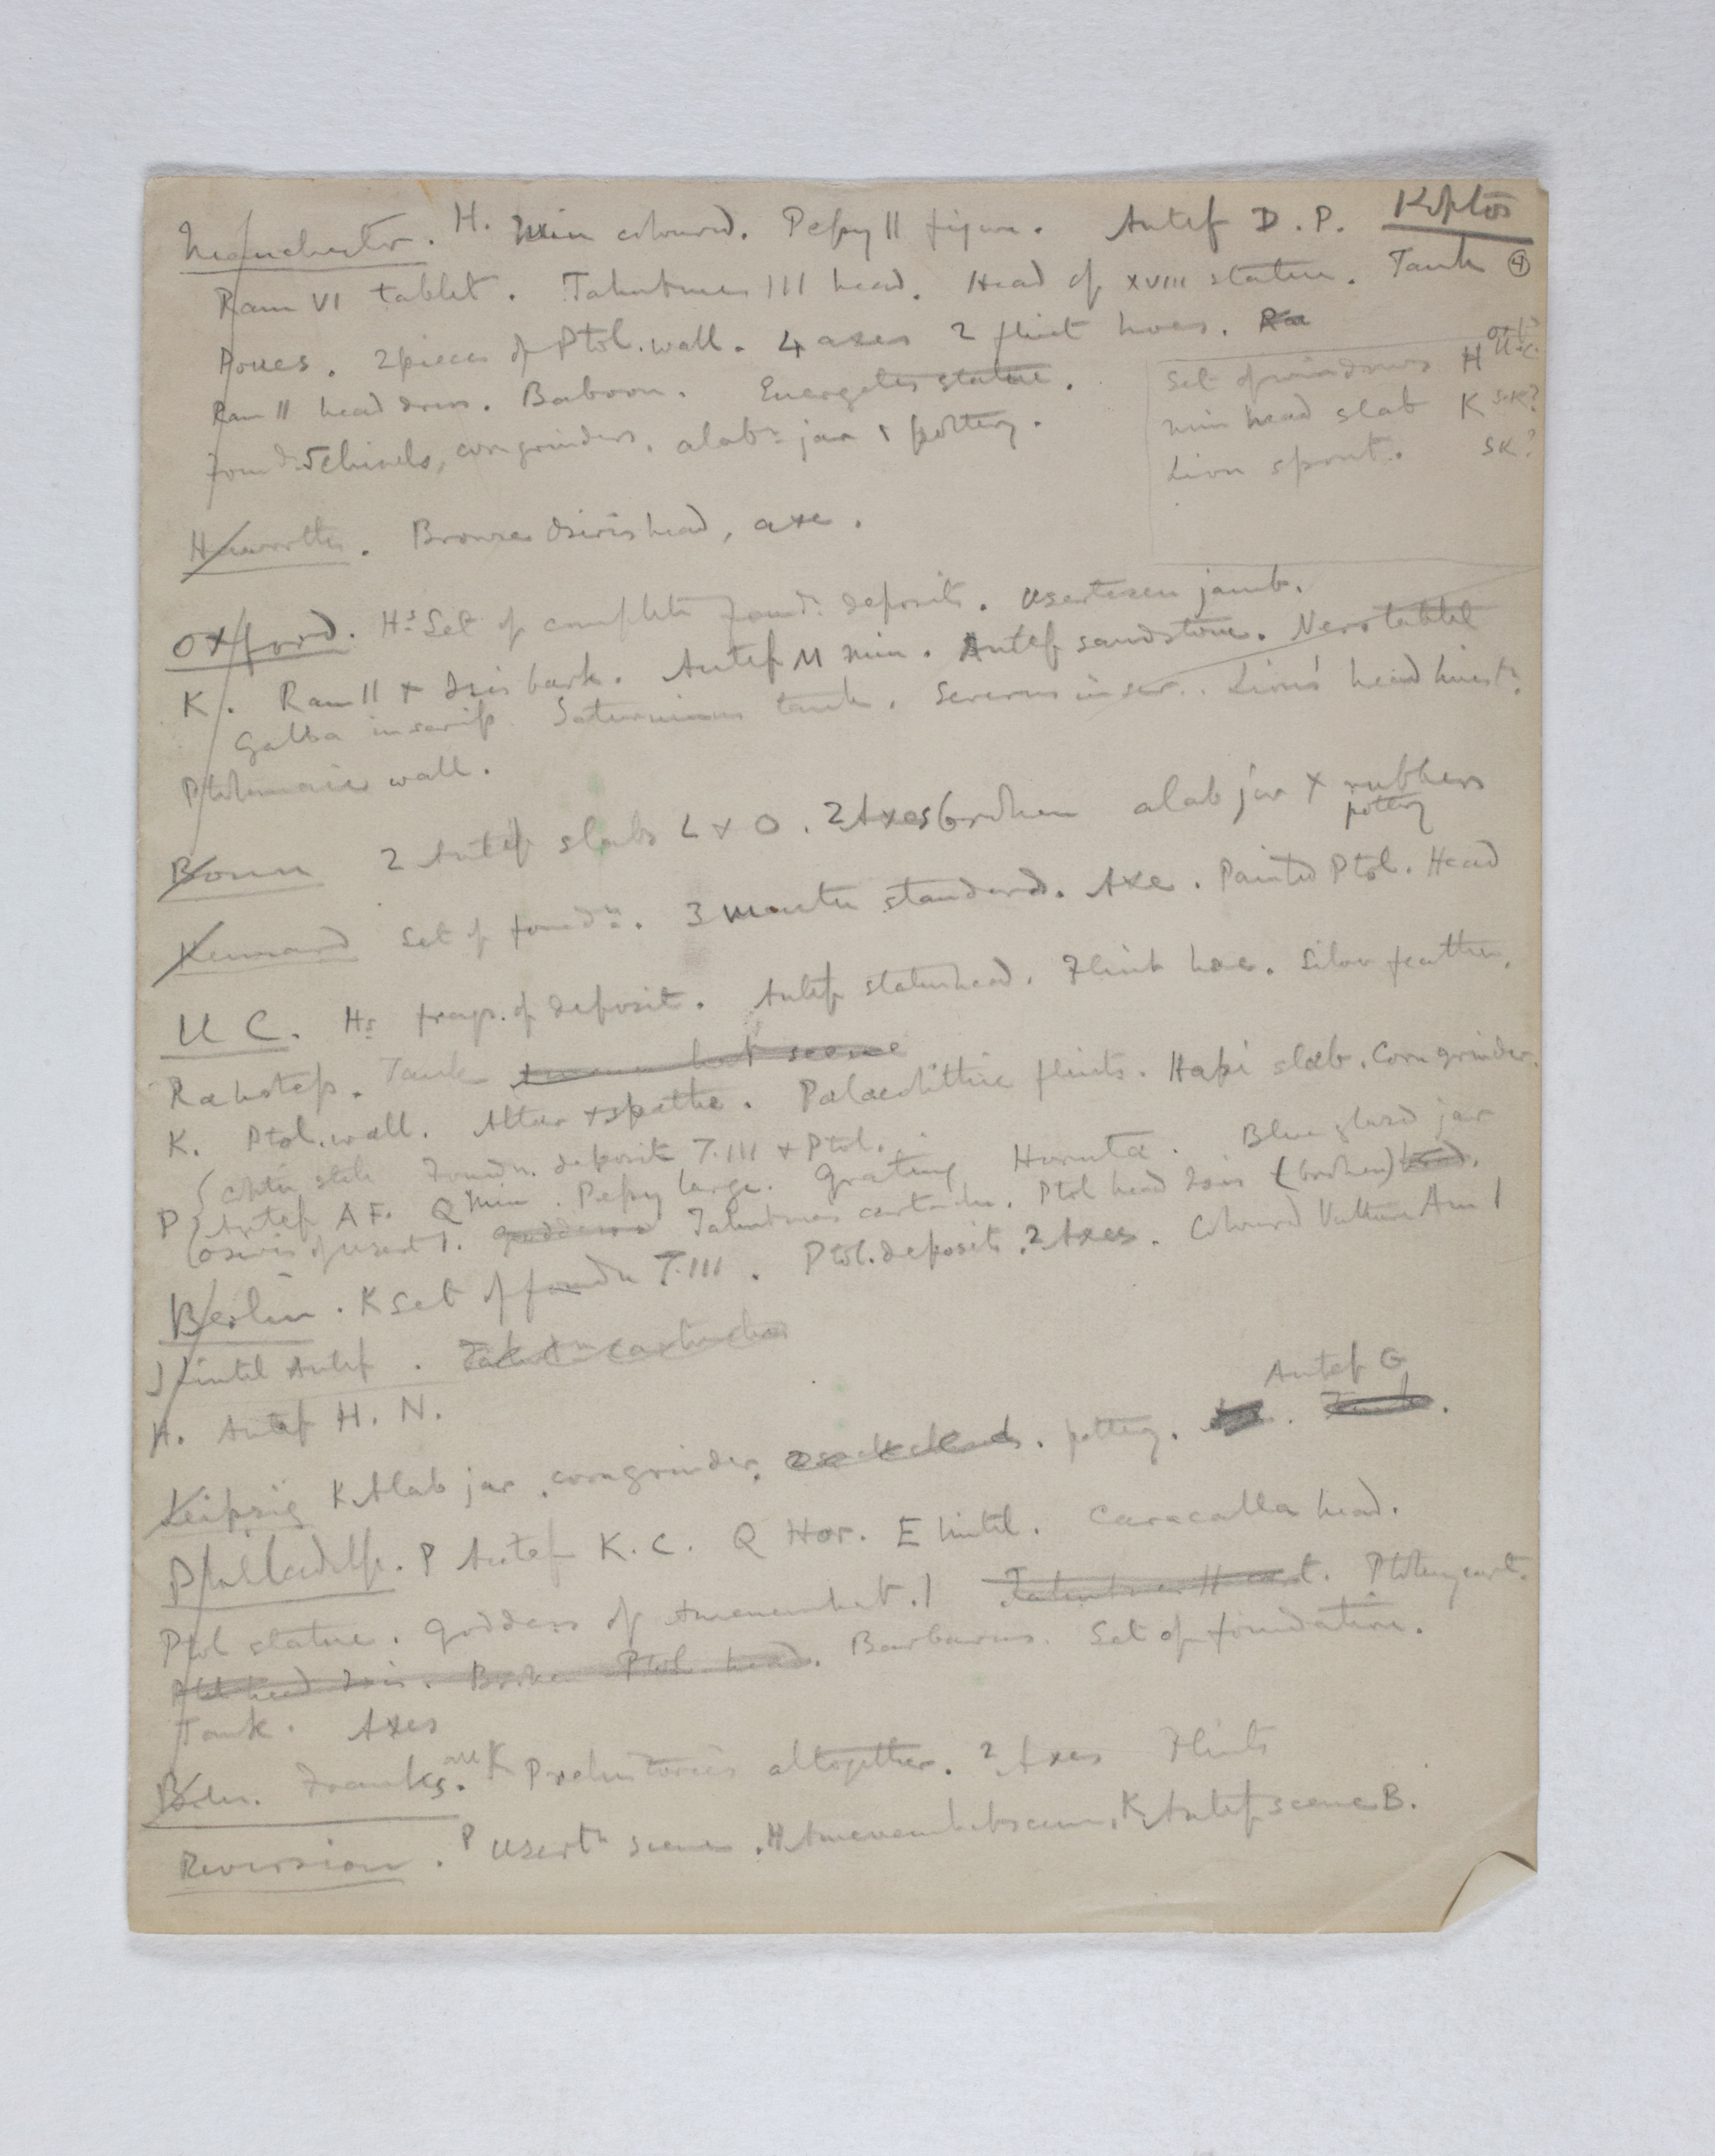 Koptos
Manchester. H. Min coloured. Pepy II figure. Antef D. P.
Ram VI tablet. Tahutmes III head. Head of XVIII statue. Tank 4
2 pieces of Ptol. wall. 4 axes 2 flint hoes. Ra
Ram II head dress. Baboon. Euergetes statue.
Found. 5 chisels, corn grinders, alabr jar & pottery.
Set of windows H
Min head slab K SK?
Lion spout. SK?
Haworth. Bronze Osiris head, axe.
Oxford. Hs Set of complete foundn deposits. Usertesen jamb.
K. Ram II + Isis bark. Antef M min. Antef sandstone. Nero tablet
Galba inscrip. Saturninus tank. Severus inscr. Lion's head
Ptolemaic wall.
Bonn 2 Antef slabs L + O. 2 Axes broken alab jar + rubbers
pottery
Kennard Set of foundn. 3 standard. Axe. Painted Ptol. Head
U C. Hs frags. of deposit. Antef statue head. Flint hoe. Silver feather,
Rahotep. Tank scene
K. Ptol. wall. Altar + spathe. Palaeolithic flints. Hapi slab. Corn grinder.
stele Foundn. deposit T. III + Ptol.
P Antef A F. Q Min. Pepy large. Grating Hornuta. Blue glazed jar
Osiris of Usert I. goddess Tahutmes cartouche. Ptol head Isis (broken) head.
Berlin. K Set of foundn T. III. Ptol. deposit. 2 Axes. Coloured Vulture Am I
Lintel Antef. Tahutm cartouche
H. Antef H. N.
Antef G
Leipzig K Alab jar, corn grinder, pottery.
Philadelp. P Antef K. C. Q Hor. E lintel. Caracalla head.
Ptol statue. Goddess of Amenemhat I Tahutmes III cart. Ptolemy cart.
Ptol head Isis. Broken Ptol. head. Barbarus. Set of foundation.
Tank. Axes
Franks. all K Prehistorics altogether. 2 Axes Flints
Reversion. P Usertn scene. H Amenemhat scene, K Antef scene B.